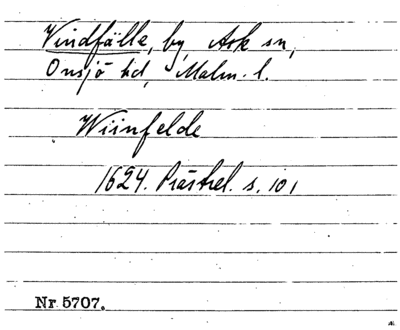 Vindfälle, by, Ask sn,
Onsjö hd, Malm. l.
Wiinfelde
1624. Prästrel. s. 101
Nr 5707.